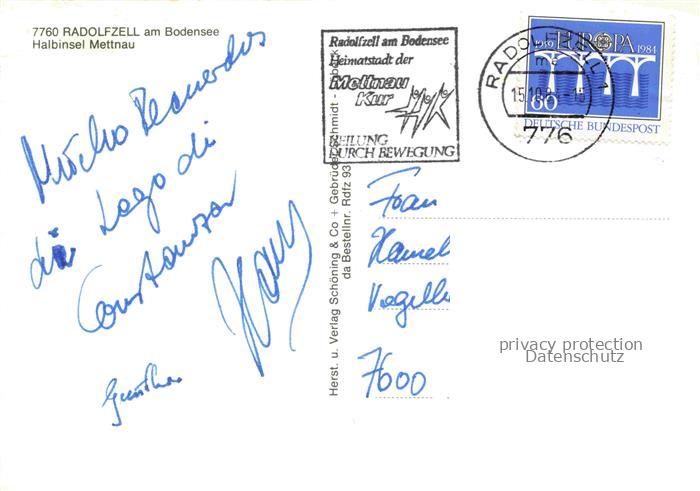 7760 RADOLFZELL am Bodensee
Halbinsel Mettnau
Mucho Recuerdos
di Lago di
Constanza
Günther
Herst. u. Verlag Schöning & Co + Gebrüder Schmidt - Lübeck
da Bestellnr. Rdfz 93
Radolfzell am Bodensee
Heimatstadt der
Mettnau
Kur
HEILUNG
DURCH BEWEGUNG
RADOLFZELL 1
15.10.84-15
776
1959 EUROPA 1984
CEPT
60
DEUTSCHE BUNDESPOST
Frau
7000
privacy protection
Datenschutz